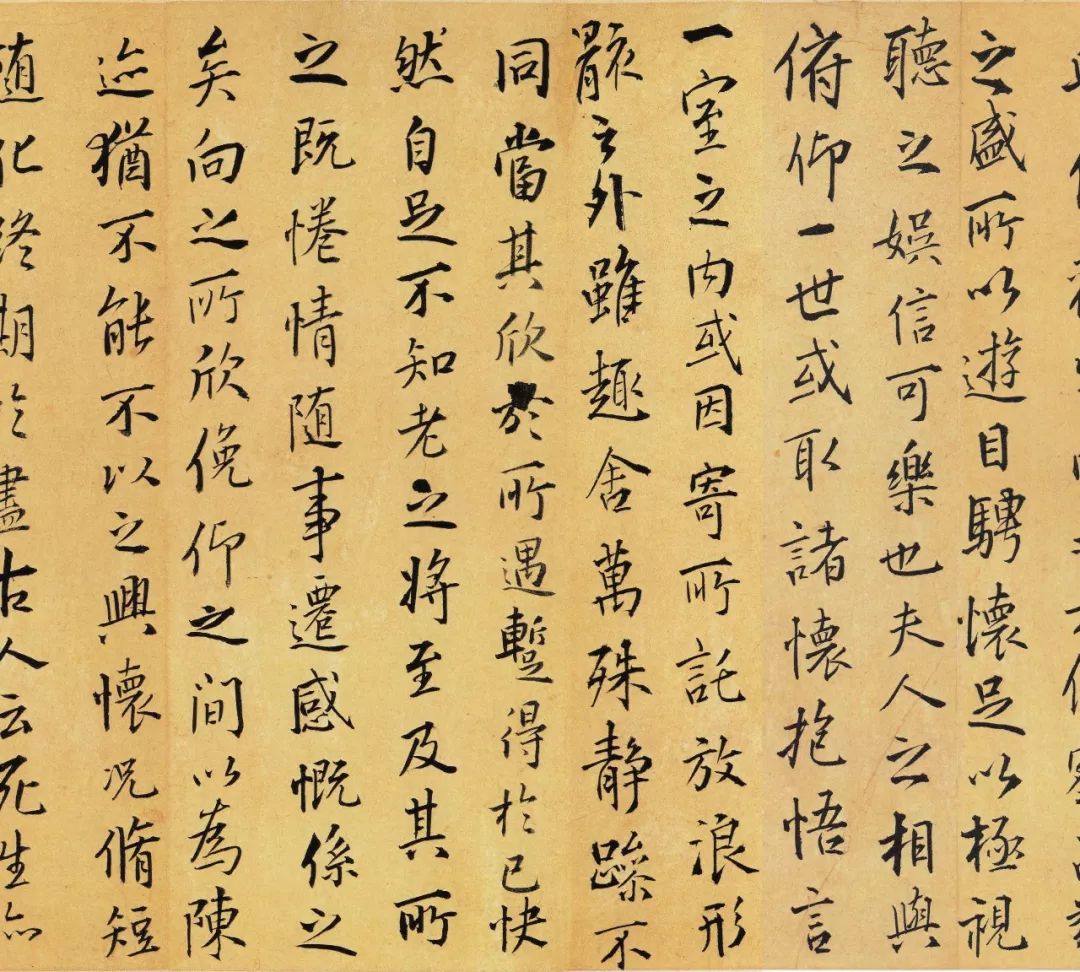 之盛所以遊目騁懷足以極視
聽之娛信可樂也夫人之相與
俯仰一世或取諸懷抱悟言
一室之内或因寄所託放浪形
骸之外雖趣舍萬殊静躁不
同當其欣於所遇暫得於己快
然自足不知老之將至及其所
之既惓情随事遷感慨係之
矣向之所欣俛仰之間以為陳
迹猶不能不以之興懷況脩短
随化終期於盡古人云死生亦